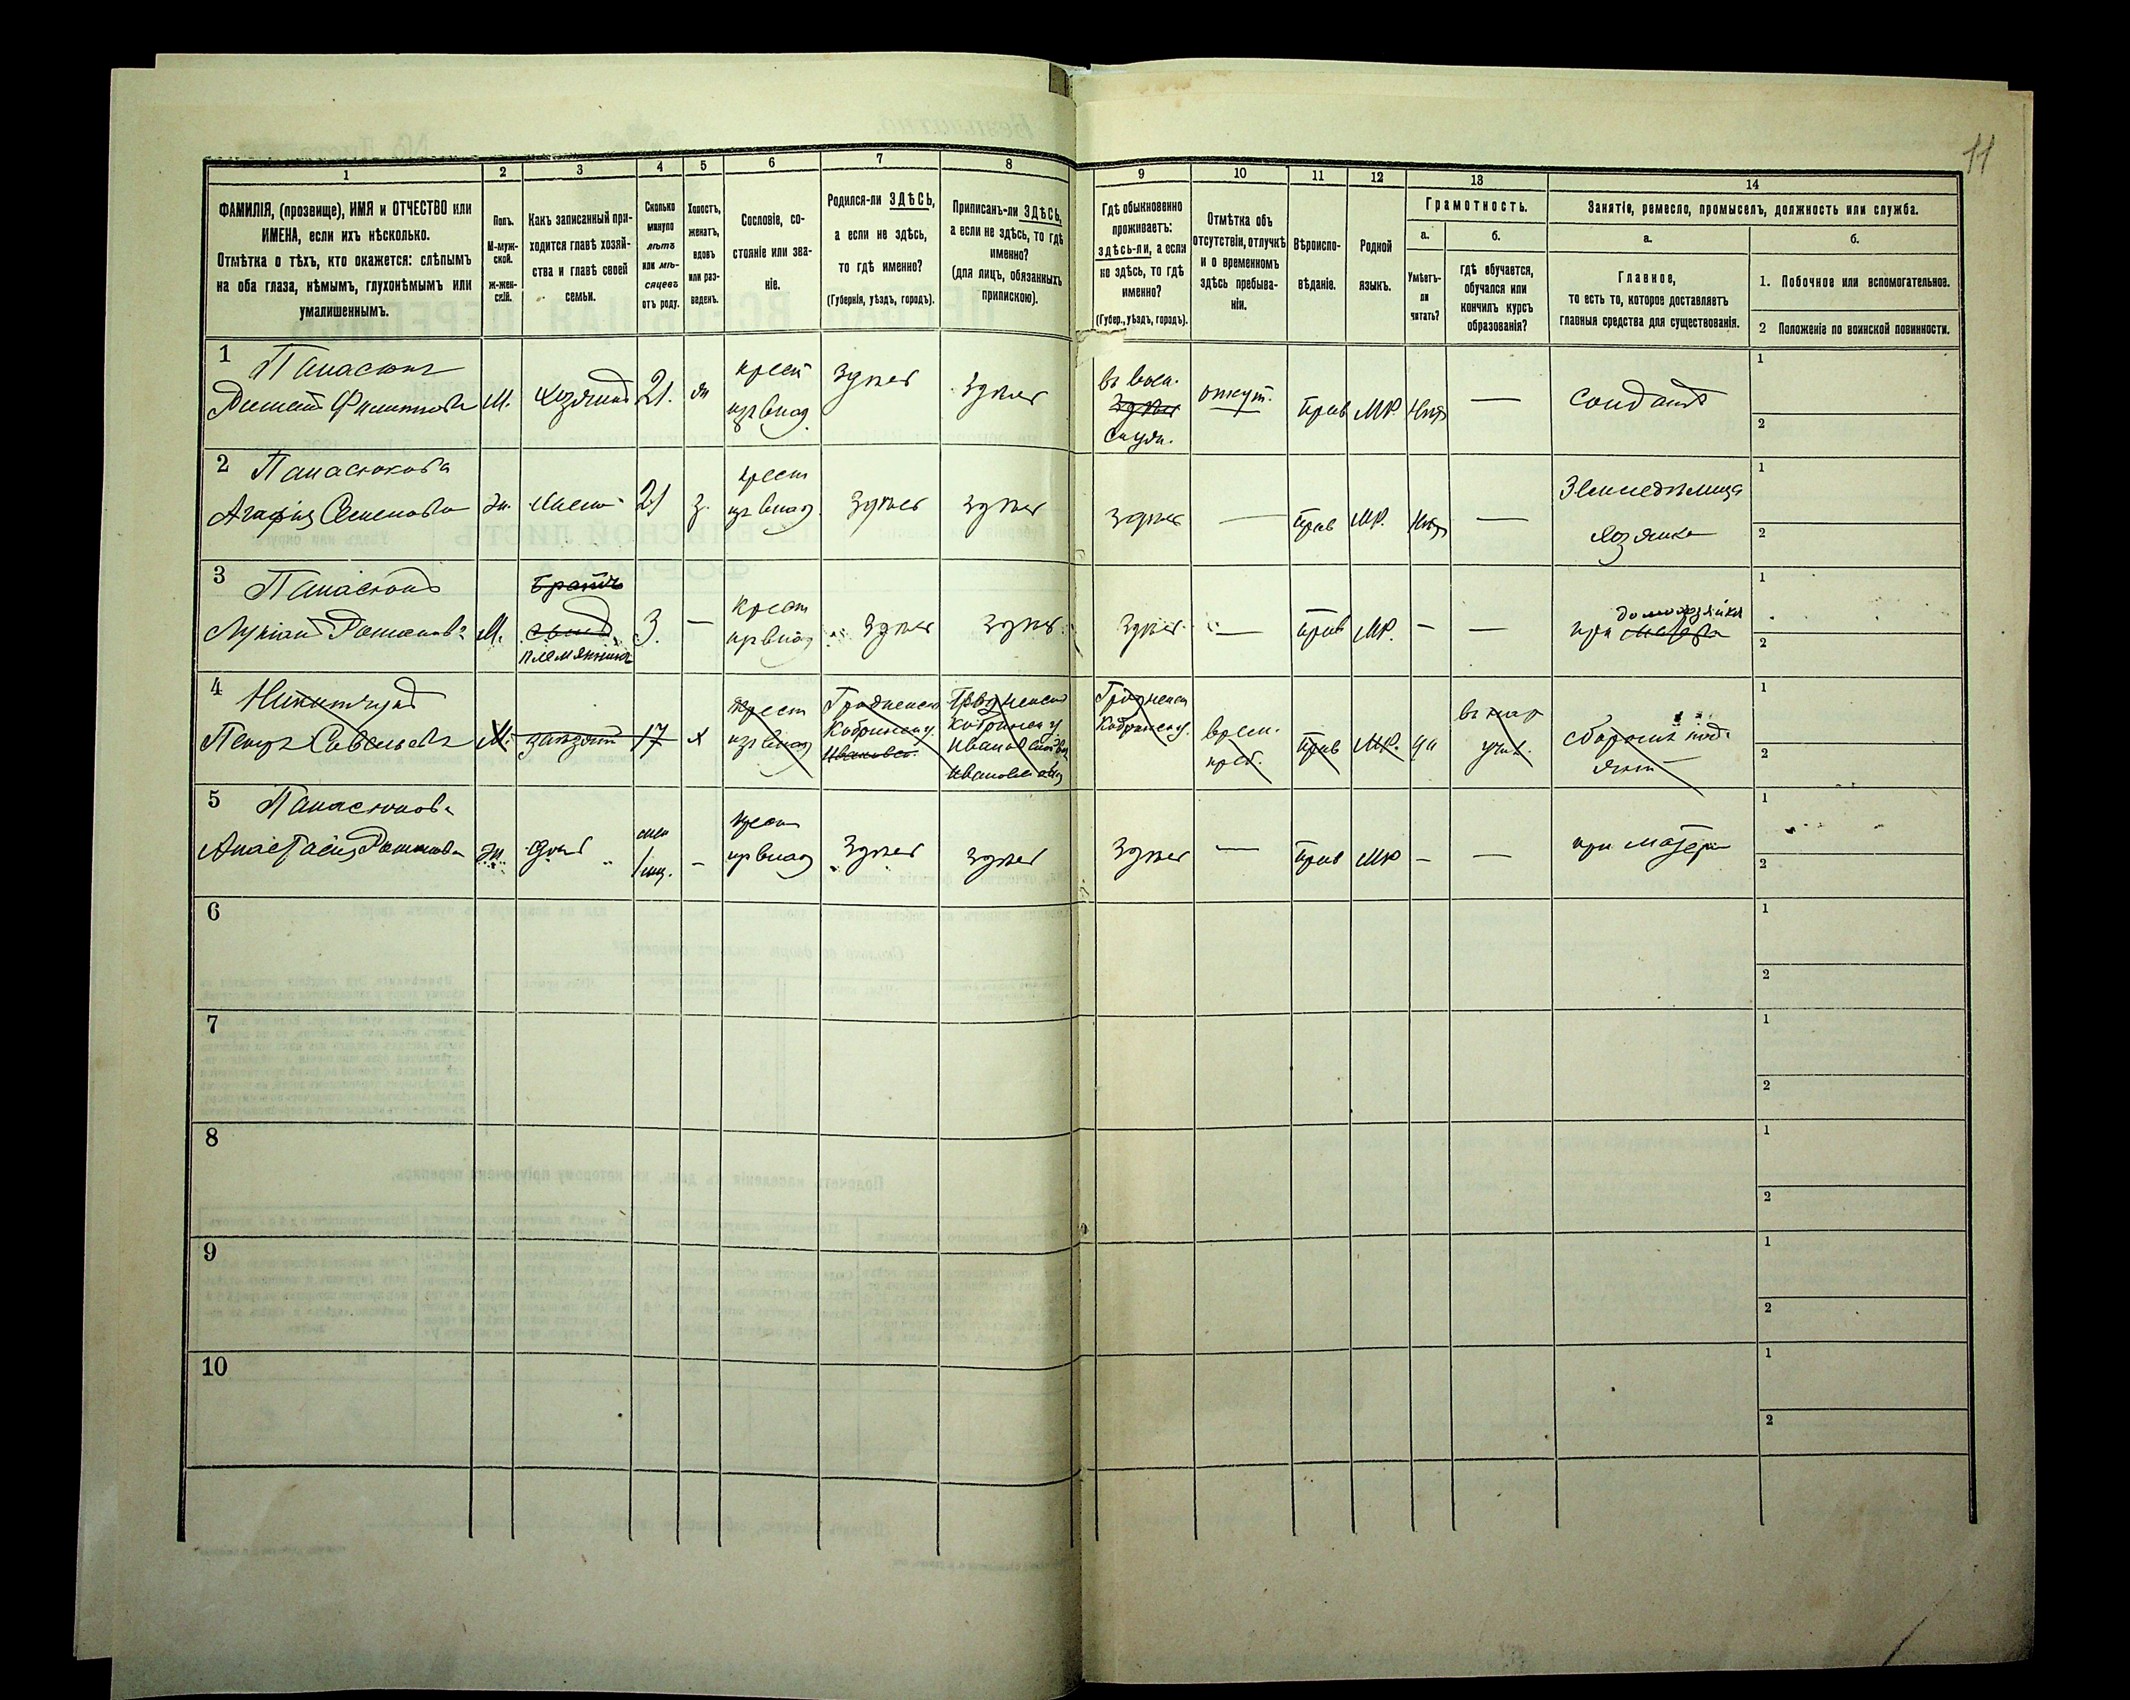 11
1 2 3 4 5 6 7 8 9 10 11 12 13 14
ФАМИЛІЯ, (прозвище), ИМЯ и ОТЧЕСТВО или
ИМЕНА, если ихъ нѣсколько.
Отмѣтка о тѣхъ, кто окажется: слѣпымъ
на оба глаза, нѣмымъ, глухонѣмымъ или
умалишеннымъ.
Полъ.
М-муж-
ской.
ж-жен-
скій.
Какъ записанный при-
ходится главѣ хозяй-
ства и главѣ своей
семьи.
Сколько
минуло
лѣтъ
или мѣ-
сяцевъ
отъ роду.
Холостъ,
женатъ,
вдовъ
или раз-
веденъ.
Сословіе, со-
стояніе или зва-
ніе.
Родился-ли ЗДѢСЬ,
а если не здѣсь,
то гдѣ именно?
(Губернія, уѣздъ, городъ).
Приписанъ-ли ЗДѢСЬ,
а если не здѣсь, то гдѣ
именно?
(для лицъ, обязанныхъ
припискою).
Гдѣ обыкновенно
проживаетъ:
здѣсь-ли, а если
не здѣсь, то гдѣ
именно?
(Губер., уѣздъ, городъ).
Отмѣтка объ
отсутствіи, отлучкѣ
и о временномъ
здѣсь пребыва-
ніи.
Вѣроиспо-
вѣданіе.
Родной
языкъ.
Грамотность.
а.
Умѣетъ-
ли
читать?
б.
гдѣ обучается,
обучался или
кончилъ курсъ
образованія?
Занятіе, ремесло, промыселъ, должность или служба.
а.
Главное,
то есть то, которое доставляетъ
главныя средства для существованія.
б.
1. Побочное или вспомогательное.
2 Положеніе по воинской повинности.
1 Панасюкъ
М. Хозяинъ 21. ж
крест
из влад.
здѣсь
здѣсь
въ воен.
здѣсь
служ.
отсут.
прав М.Р. нѣтъ — солдатъ
1
2
2 Панасюкова
Агафія Семенова ж. жена 21 з.
крест
из влад.
здѣсь здѣсь здѣсь — прав М.Р. нѣтъ —
Земледѣлица
хозяйка
1
2
3 Панасюкъ
Романовъ М.
братъ
сынъ
племянникъ
3. —
крест
из влад
здѣсь здѣсь здѣсь — прав М.Р. — —
домохозяйки
при матери
1
2
4 Никитчукъ
Савельевъ М. 17 х
крест
из влад
Гродненск
Кобринск у.
Гродненск
Кобринск у.
Гродненск
Кобринск у.
врем.
преб.
прав М.Р. да
въ нар
учил.
1
2
5 Панасюкова
Анастасія Романова ж. дочь
1 мц. —
крест
из влад
здѣсь здѣсь здѣсь — прав МР — — при матери
1
2
6
1
2
7
1
2
8
1
2
9
1
2
10
1
2